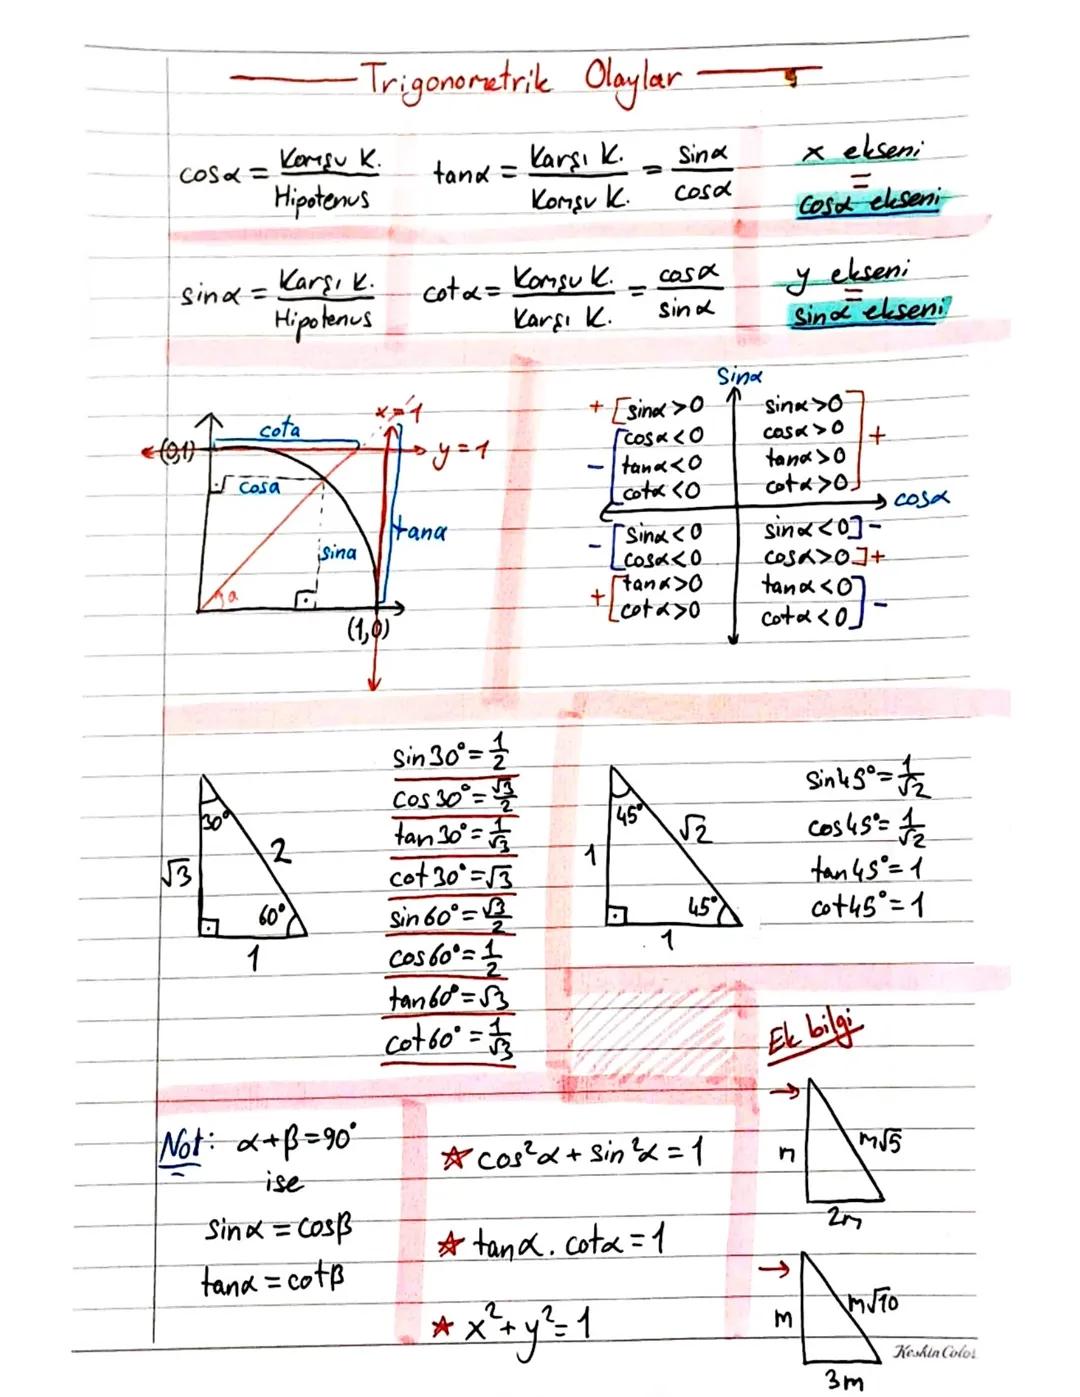 Trigonometrik Olaylar
cosα = Komşu K. / Hipotenus
tanα = Karşı K. / Komşu K. = sinα / cosα
x ekseni
=
cosα ekseni
sinα = Karşı K. / Hipotenus
cotα = Komşu K. / Karşı K. = cosα / sinα
y ekseni
=
sinα ekseni
x=1
cota
(0,1)
y=1
cosa
tana
sina
a
(1,0)
Sinα
+ [sinα>0
[cosα<0
- tanα<0
cotα<0
sinα>0]
cosα>0 +
tanα>0
cotα>0]
cosα
- [Sinα<0
[cosα<0
+ [tanα>0
[cotα>0
sinα<0]-
cosα>0]+
tanα<0]
cotα<0] -
30°
√3
2
60°
1
sin30°=1/2
cos30°=√3/2
tan30°=1/√3
cot30°=√3
sin60°=√3/2
cos60°=1/2
tan60°=√3
cot60°=1/√3
45°
1
√2
45°
1
Sin45°=1/√2
cos45°=1/√2
tan45°=1
cot45°=1
Ek bilgi
Not: α+β=90°
ise
sinα=cosβ
tanα=cotβ
☆ cos²α + sin²α = 1
☆ tanα . cotα = 1
☆ x²+y²=1
→
m√5
n
2m
→
m√10
m
3m
Keskin Color